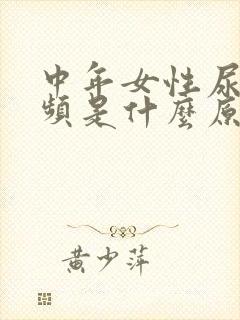 中年女性尿
頻是什麼原
黄少萍